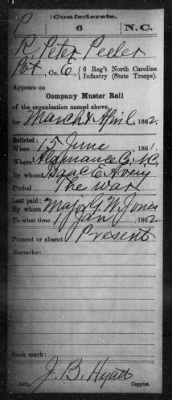 P
Confederate.
6 N.C.
R. Peter Peeler
Pvt, Co. E, 6 Reg't North Carolina
Infantry (State Troops).
Appears on
Company Muster Roll
of the organization named above,
for March & April, 1862.
Enlisted:
When 15 June, 1861.
Where Alamance Co. N.C.
By whom Isaac E. Avery
Period The war
Last paid:
By whom Major G. W. Jones
To what time 1 Jan, 1862.
Present or absent Present
Remarks:
Book mark:
J. B. Hyatt
Copyist.